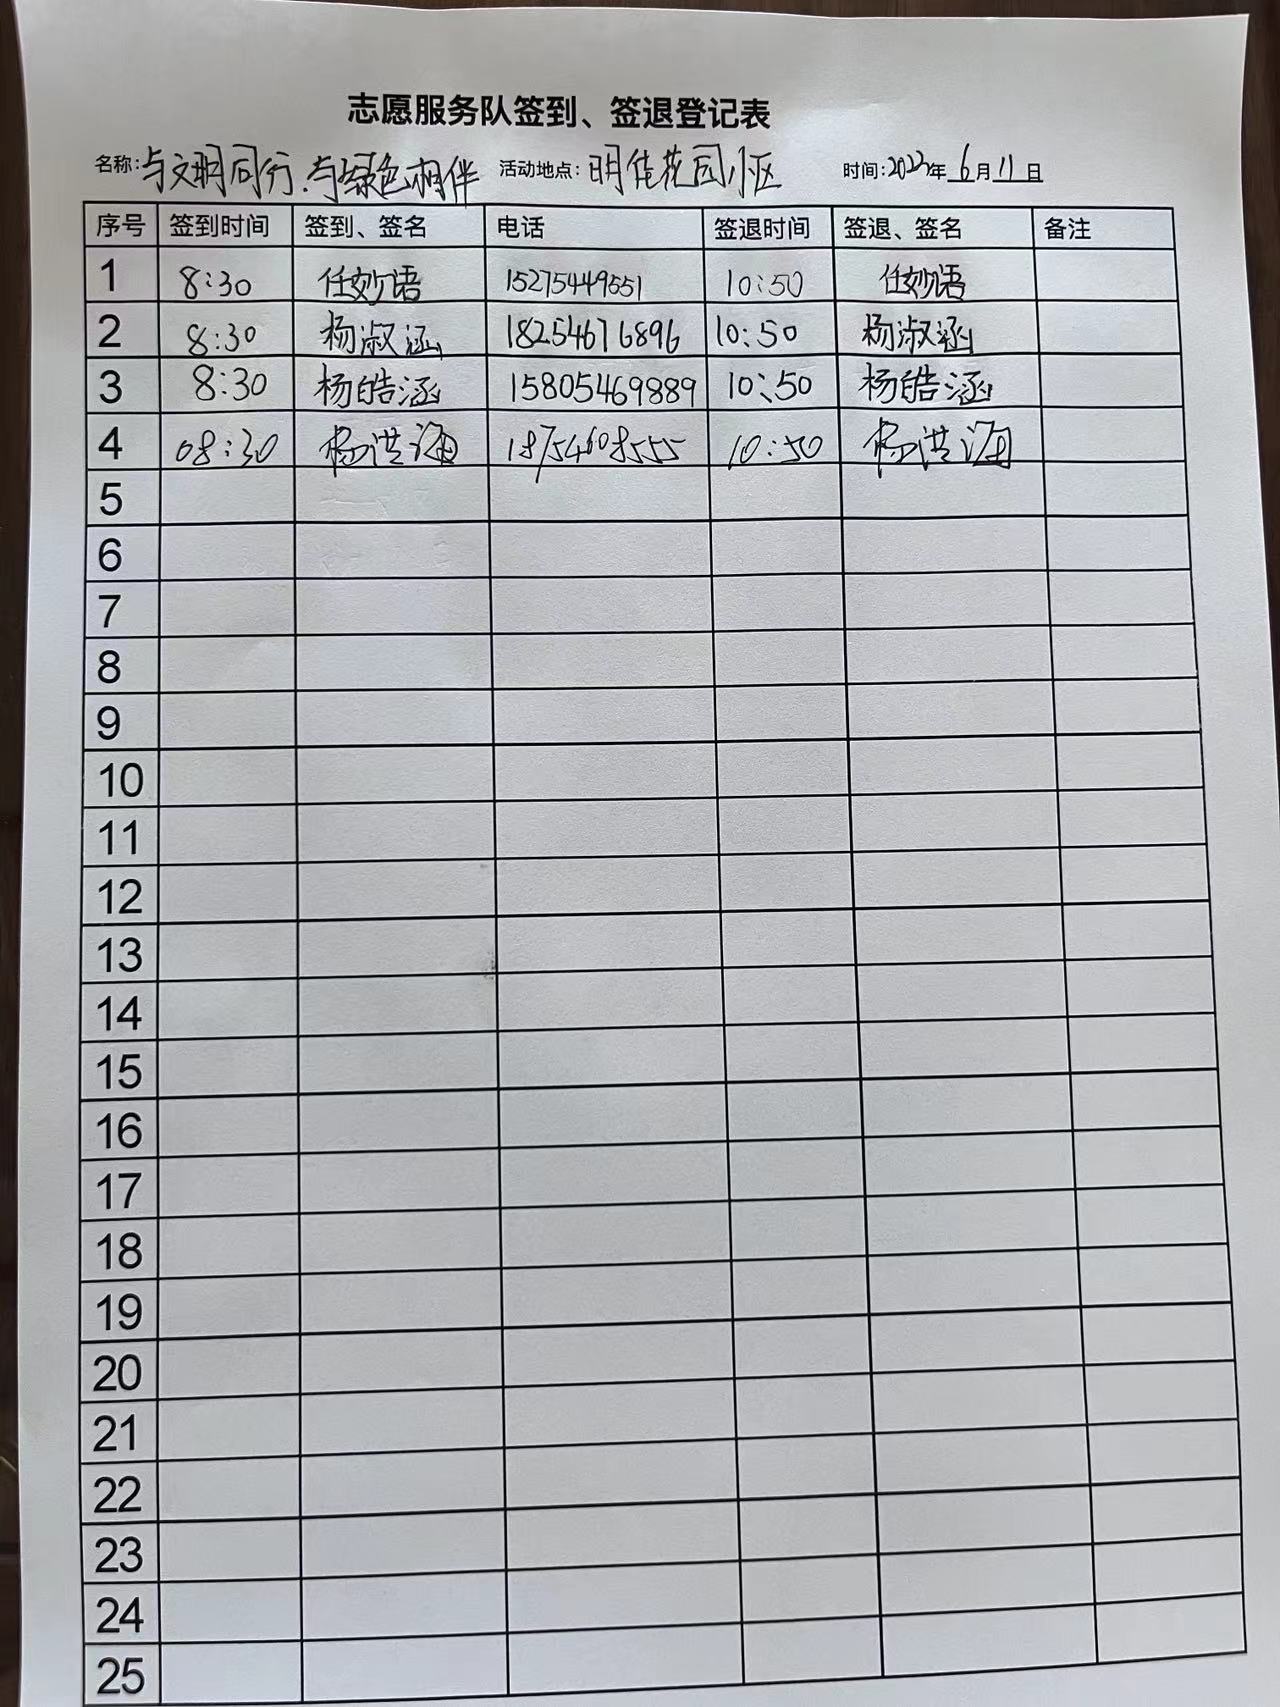 志愿服务队签到、签退登记表
名称:与文明同行.与绿色相伴 活动地点:明佳花园小区 时间:2023年6月11日
序号 签到时间 签到、签名 电话 签退时间 签退、签名 备注
1 8:30 任妙语 15275449551 10:50 任妙语
2 8:30 杨淑涵 18254676896 10:50 杨淑涵
3 8:30 杨皓涵 15805469889 10:50 杨皓涵
4 08:30 杨洪海 18754608555 10:50 杨洪海
5
6
7
8
9
10
11
12
13
14
15
16
17
18
19
20
21
22
23
24
25